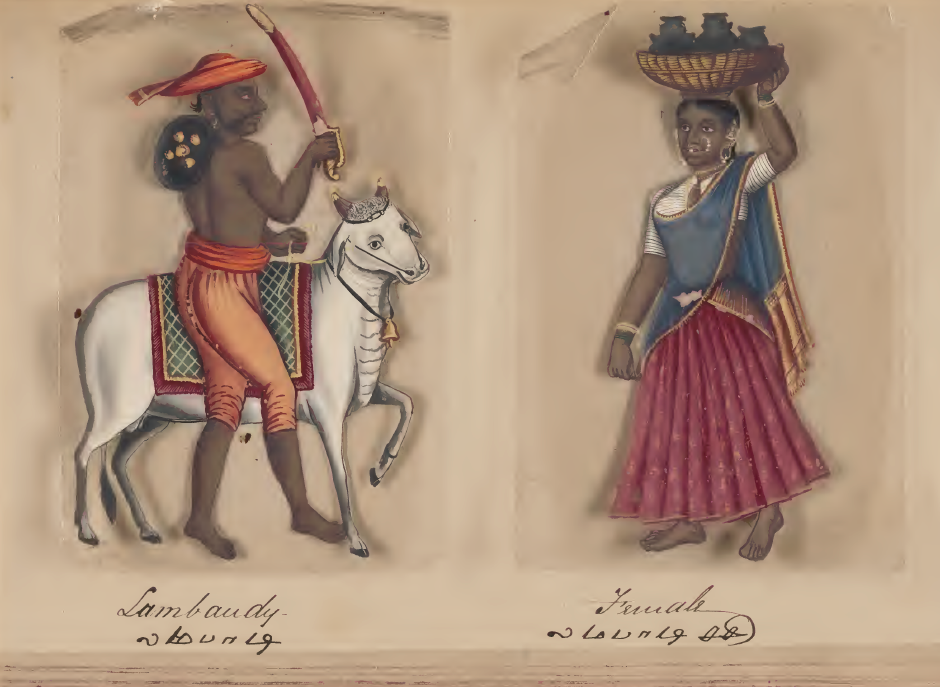 Lambaudy-
லமபாடி
Female
லமபாடி